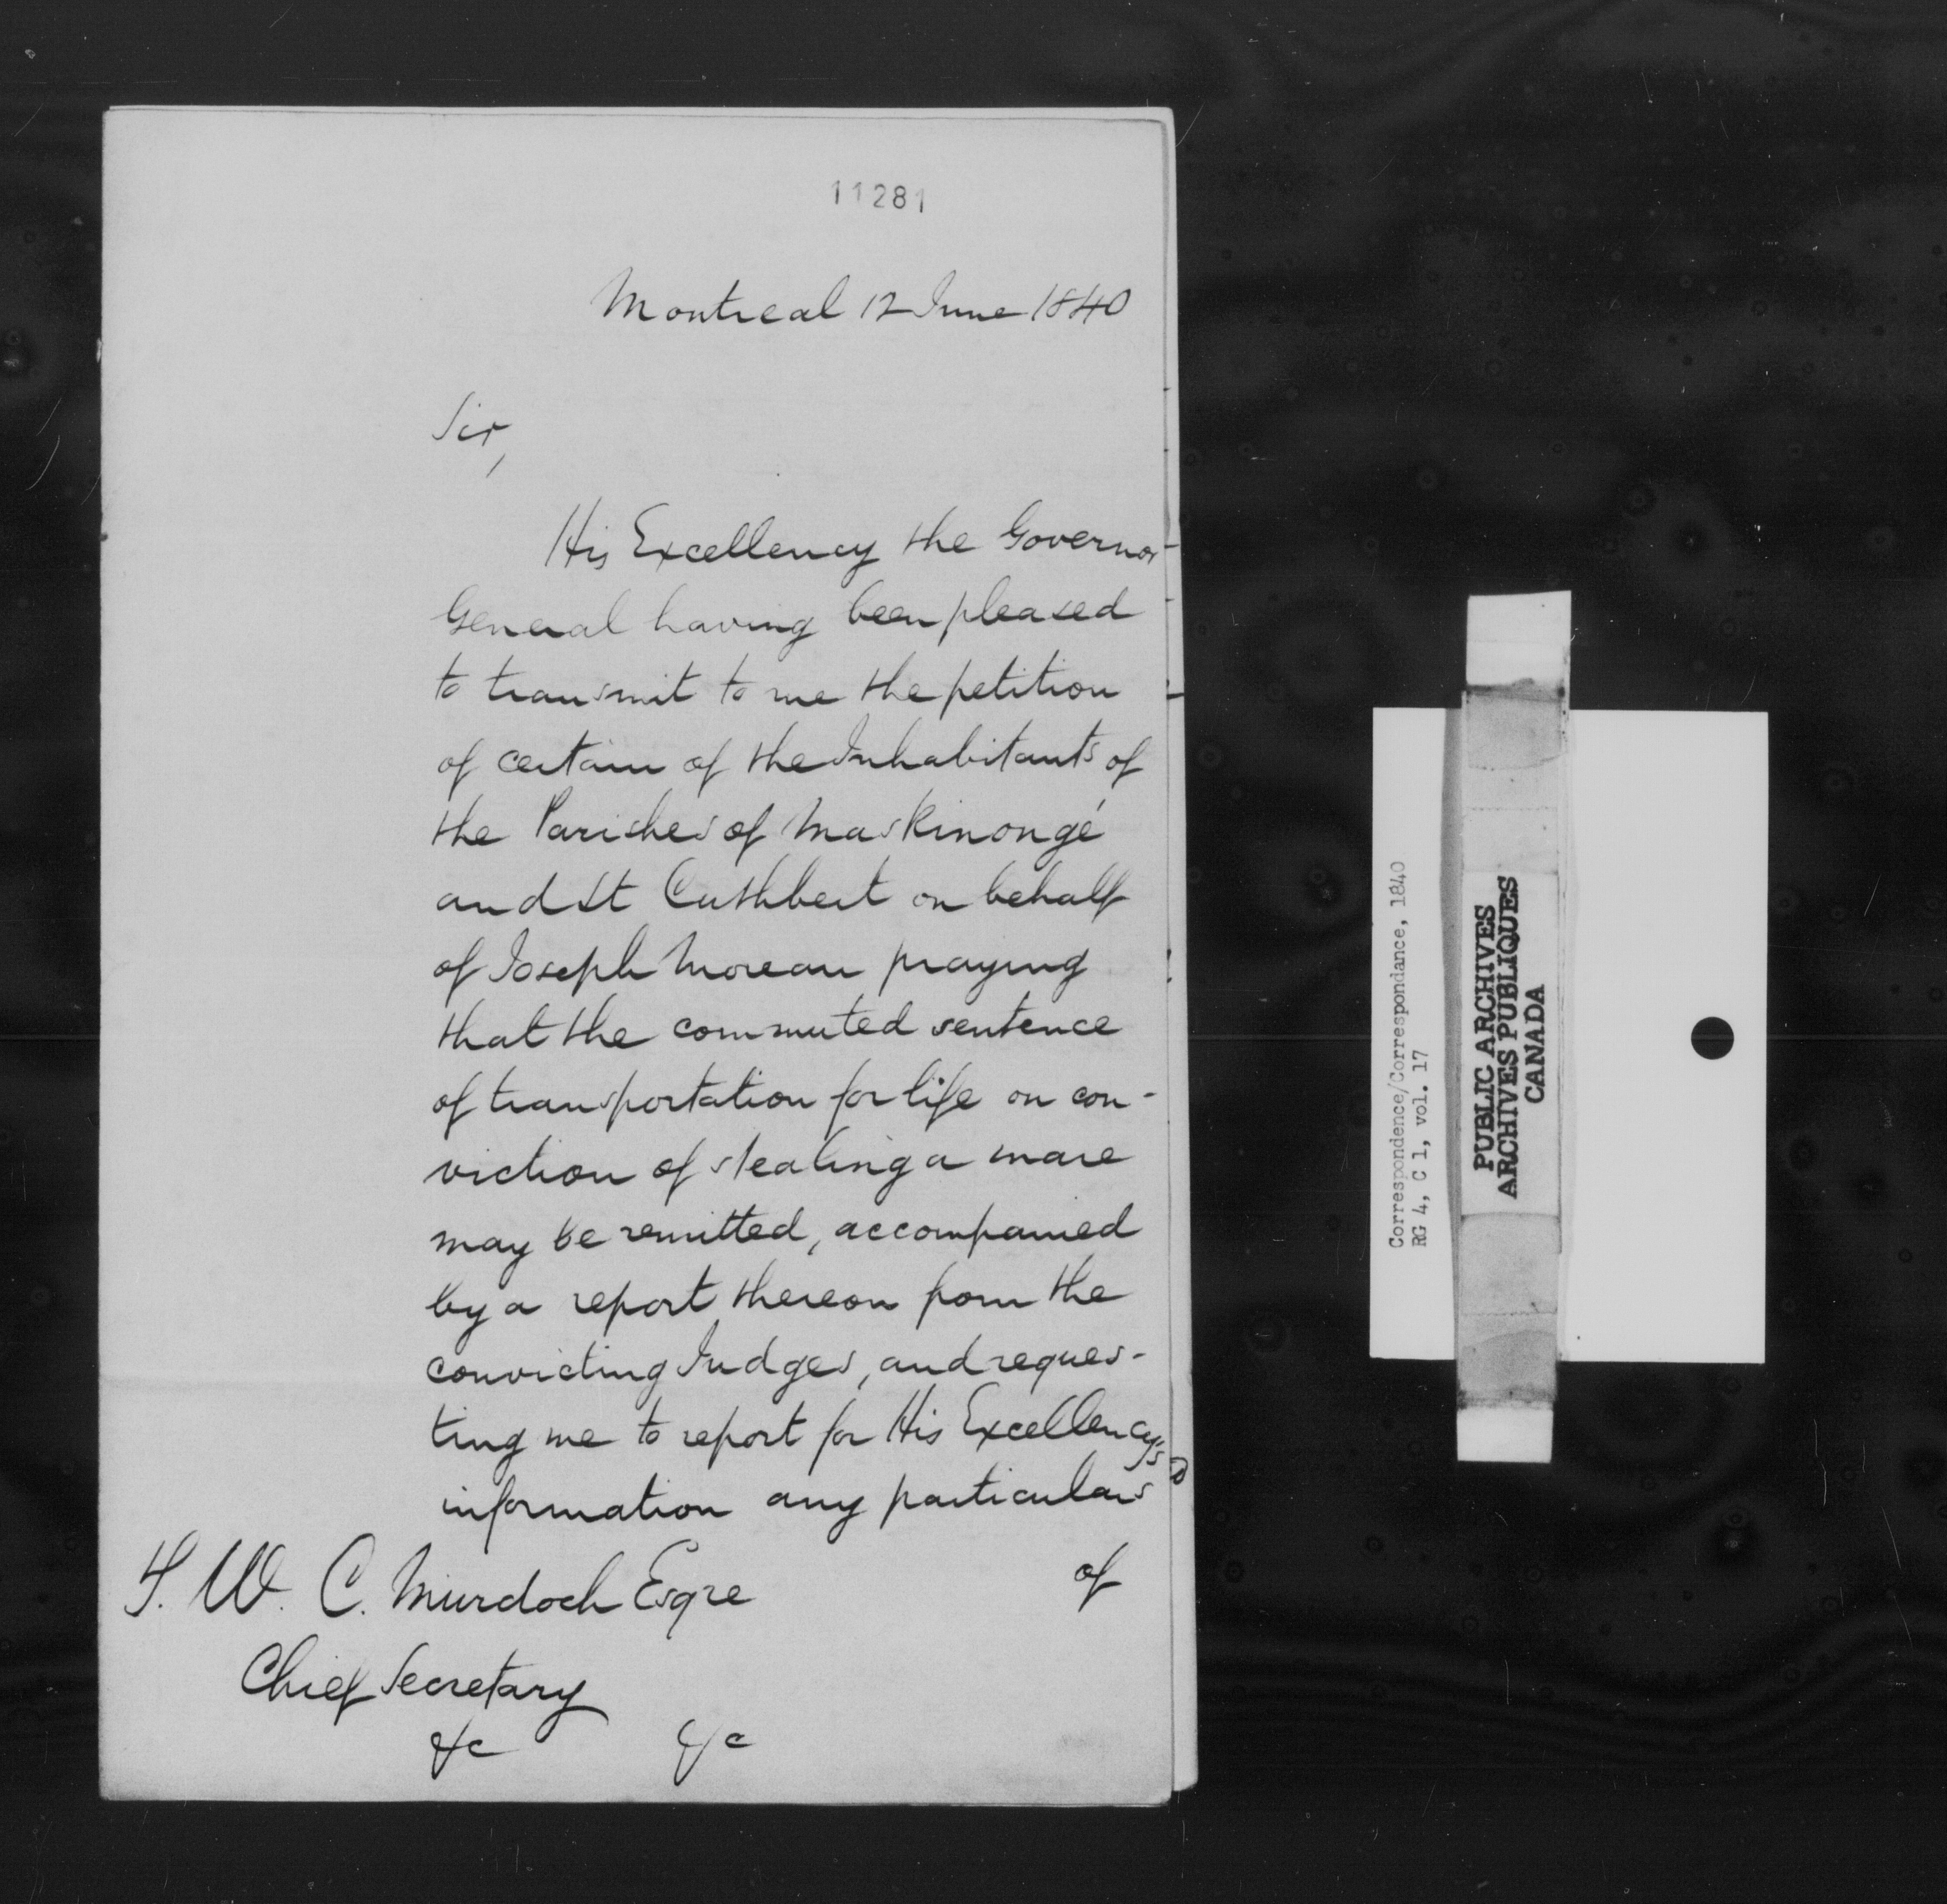 11281
Montreal 12 June 1840
Sir,
His Excellency the Governor
General having been pleased
to transmit to me the petition
of certain of the Inhabitants of
the Parishes of Maskinongé
and St Cuthbert on behalf
of Joseph Moreau praying
that the commuted sentence
of transportation for life on con-
viction of stealing a mare
may be remitted, accompanied
by a report thereon from the
convicting Judges, and reques-
ting me to report for His Excellency's
information any particulars
of
T. W. C. Murdoch Esqre
Chief Secretary
&c &c
Correspondence/Correspondance, 1840
RG 4, C 1, vol. 17
PUBLIC ARCHIVES
ARCHIVES PUBLIQUES
CANADA